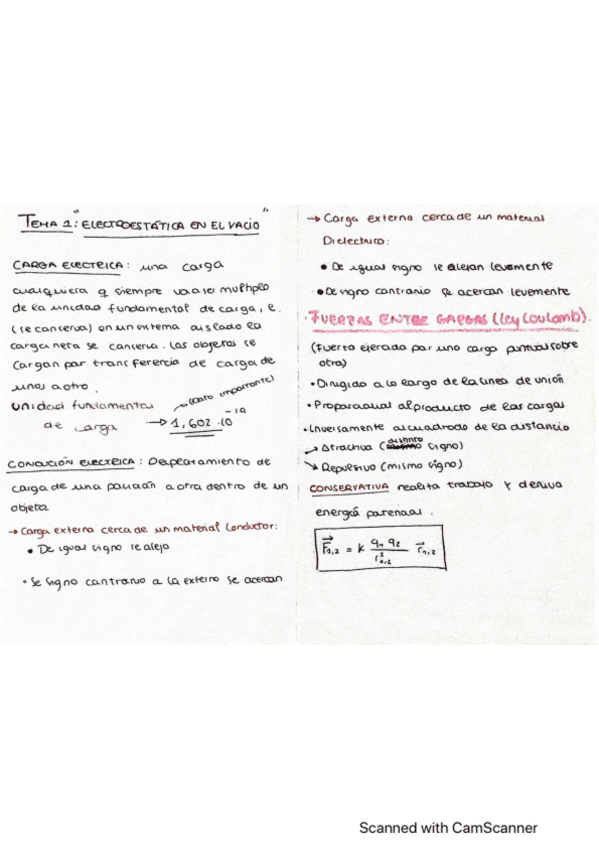 TEMA 1: "ELECTROESTÁTICA EN EL VACIO"
CARGA ELECTRICA: una carga
cualquiera q siempre va a ser multiplo
de la unidad fundamental de carga, e.
(se conserva) en un sistema aislado la
carga neta se conserva. Las objetos se
cargan por transferencia de carga de
unos a otro.
(dato importante)
unidad fundamental
de carga → 1,602 · 10^-19
CONDUCIÓN ELECTRICA: Desplazamiento de
carga de una posición a otra dentro de un
objeto
→ Carga externa cerca de un material Conductor:
• De igual signo se aleja
• De signo contrario a la externa se acercan
→ Carga externa cerca de un material
Dielectrico:
• De igual signo se alejan levemente
• De signo contrario se acercan levemente
· FUERZAS ENTRE CARGAS (Ley Coulomb).
(Fuerza ejercida por una carga puntual sobre
otra)
• Dirigido a lo largo de la linea de unión
• Proporcional al producto de las cargas
• Inversamente al cuadrado de la distancia
→ Atractiva (distinto signo)
→ Repulsiva (mismo signo)
CONSERVATIVA realiza trabajo y deriva
energía potencial.
F⃗1,2 = K q1 q2 / r²1,2 r⃗1,2
Scanned with CamScanner